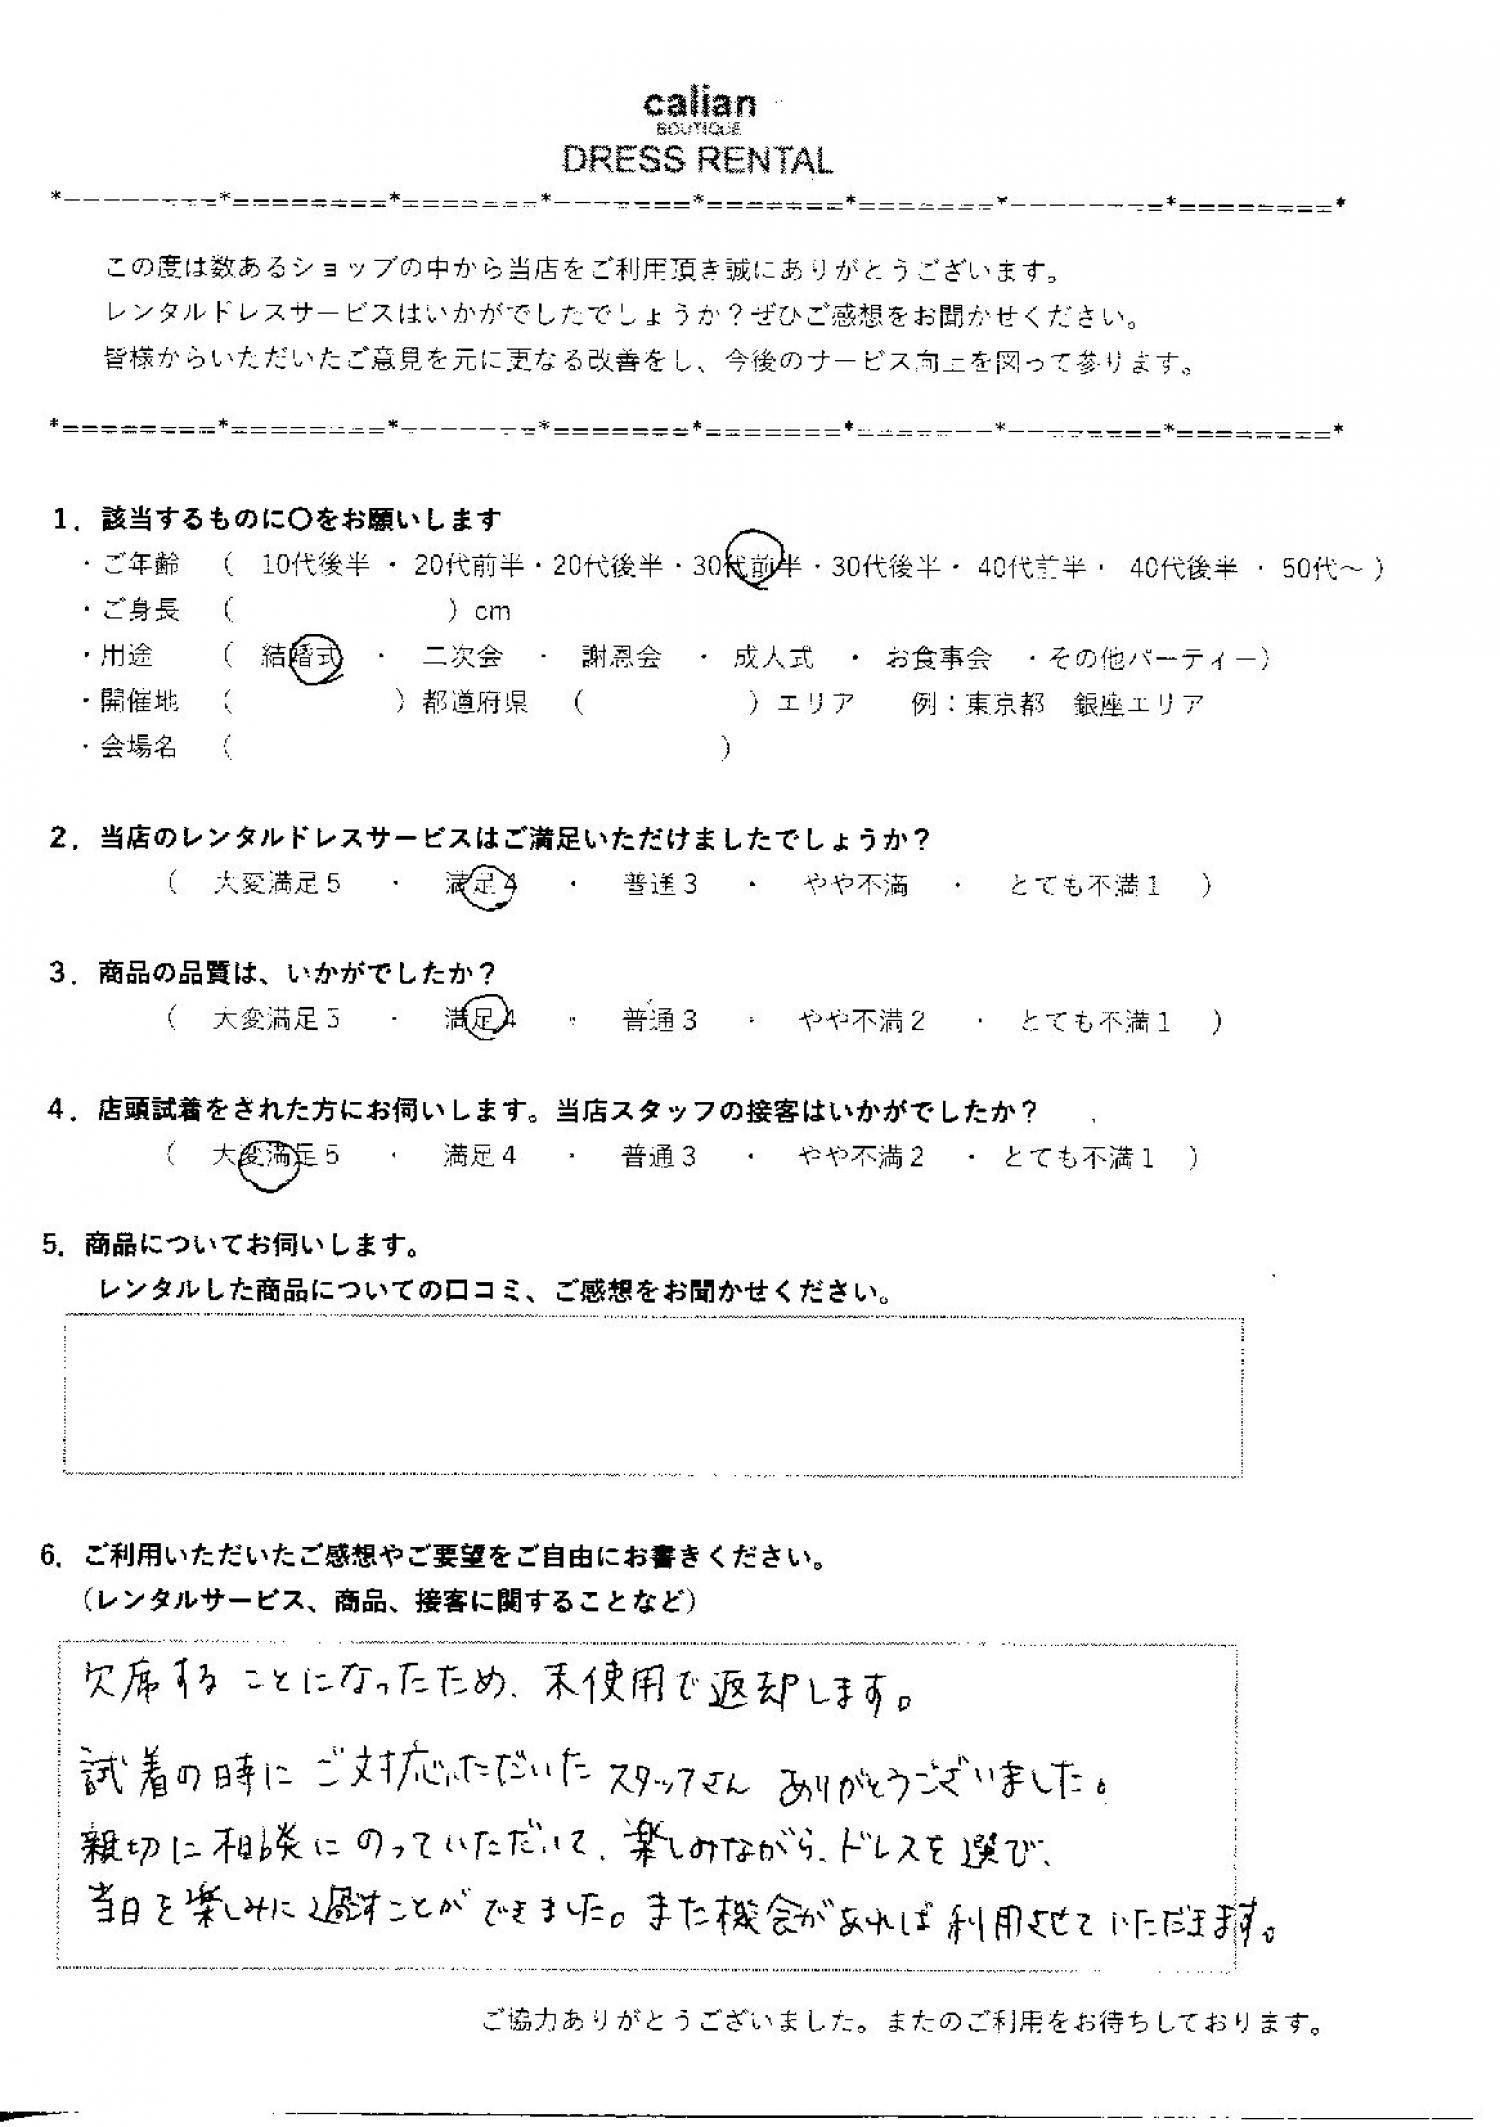 calian
BOUTIQUE
DRESS RENTAL
*--------*========*=======*-------*=======*=======*--------*========*
この度は数あるショップの中から当店をご利用頂き誠にありがとうございます。
レンタルドレスサービスはいかがでしたでしょうか?ぜひご感想をお聞かせください。
皆様からいただいたご意見を元に更なる改善をし、今後のサービス向上を図って参ります。
*========*========*-------*=======*=======*-------*--------*========*
1. 該当するものに〇をお願いします
・ご年齢 ( 10代後半 ・ 20代前半・20代後半・30代前半・30代後半・ 40代前半・ 40代後半 ・ 50代~ )
・ご身長 ( ) cm
・用途 ( 結婚式 ・ 二次会 ・ 謝恩会 ・ 成人式 ・ お食事会 ・その他パーティー)
・開催地 ( ) 都道府県 ( ) エリア 例:東京都 銀座エリア
・会場名 ( )
2. 当店のレンタルドレスサービスはご満足いただけましたでしょうか?
( 大変満足5 ・ 満足4 ・ 普通3 ・ やや不満 ・ とても不満1 )
3. 商品の品質は、いかがでしたか?
( 大変満足5 ・ 満足4 ・ 普通3 ・ やや不満2 ・ とても不満1 )
4. 店頭試着をされた方にお伺いします。当店スタッフの接客はいかがでしたか?
( 大変満足5 ・ 満足4 ・ 普通3 ・ やや不満2 ・ とても不満1 )
5. 商品についてお伺いします。
レンタルした商品についての口コミ、ご感想をお聞かせください。
6. ご利用いただいたご感想やご要望をご自由にお書きください。
(レンタルサービス、商品、接客に関することなど)
欠席することになったため、未使用で返却します。
試着の時にご対応いただいたスタッフさん ありがとうございました。
親切に相談にのっていただいて、楽しみながら、ドレスを選び、
当日を楽しみに過すことができました。また機会があれば利用させていただきます。
ご協力ありがとうございました。またのご利用をお待ちしております。